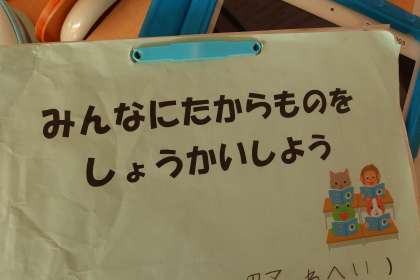 みんなにたからものを
しょうかいしよう